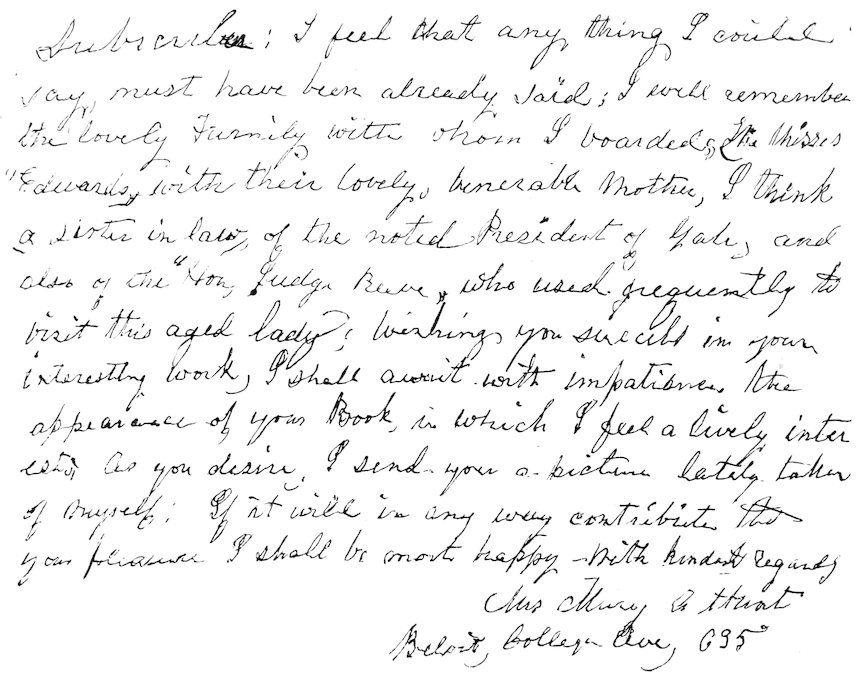 Subscriber: I feel that any thing I could
say, must have been already said; I well remember
the lovely Family with whom I boarded, The Misses
"Edwards, with their lovely, venerable Mother, I think
a sister in law, of the noted President of Yale, and
also of the "Hon, Judge Reeve, who used frequently to
visit this aged lady; Wishing you success in your
interesting work, I shall await with impatience the
appearance of your Book, in which I feel a lively inter
est, As you desire, I send you a picture lately taken
of myself; If it will in any way contribute to
your pleasure I shall be most happy - With kindest regards
Mrs Mary A Hunt
Beloit, College Ave, 695